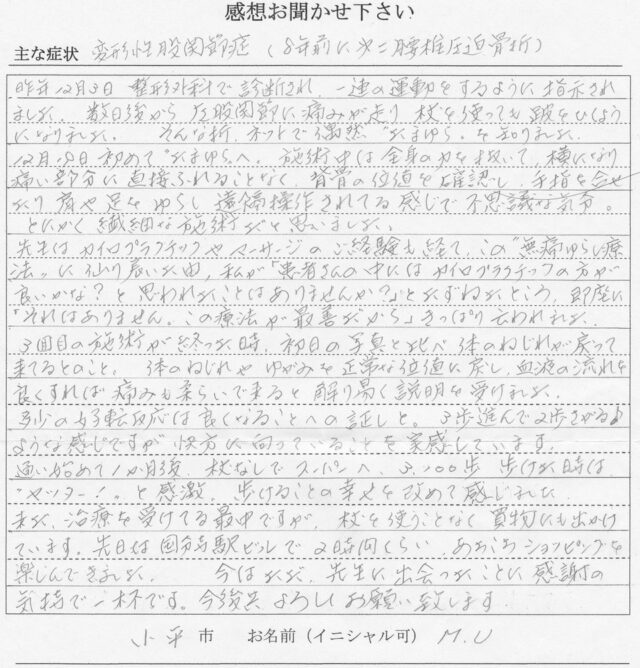 感想お聞かせ下さい
主な症状 変形性股関節症（8年前に第二腰椎圧迫骨折）
昨年12月3日 整形外科で診断され、一連の運動をするように指示され
ました。数日後から 左股関節に痛みが走り 杖を使っても 跛をひくよう
になりました。 そんな折、ネットで偶然"たまゆら"を知りました。
12月 初めて"たまゆらへ。施術中は全身の力を抜いて、横になり
痛い部分に直接ふれることなく、背骨の位置を確認し、手指を合せ
たり 肩や足をゆらし 遠隔操作されてる感じで不思議な気分。
とにかく 繊細な施術だと思いました。
先生は カイロプラクチックや マッサージの ご経験も経て、この"無痛ゆらし療
法"に辿り着いた由、私が「患者さんの中には カイロプラクチックの方が
良いかな？と 思われたことはありませんか？」とたずねたところ、即座に
「それはありません。この療法が最善だから」きっぱり 云われました。
3回目の施術が終った時、初日の写真と比べ 体のねじれが戻って
来てるとのこと。 体のねじれや ゆがみを正常な位値に戻し、血液の流れを
良くすれば 痛みも柔らいで来ると 解り易く説明を受けました。
多少の好転反応は良くなることへの証しと。3歩進んで2歩さがる
ような感じですが 快方に向っていることを実感しています。
通い始めて1か月後、杖なしで スーパーへ、3,100歩 歩けた時は
"ヤッター！"と感激、歩けることの幸せを改めて感じました。
まだ、治療を受けてる最中ですが、杖を使うことなく 買物にも出かけ
ています。先日は国分寺駅ビルで 2時間くらい、あちこち ショッピングを
楽しんできました。 今はただ、先生に出会ったことに感謝の
気持で一杯です。今後共 よろしく お願い致します
小平 市 お名前（イニシャル可） M.U